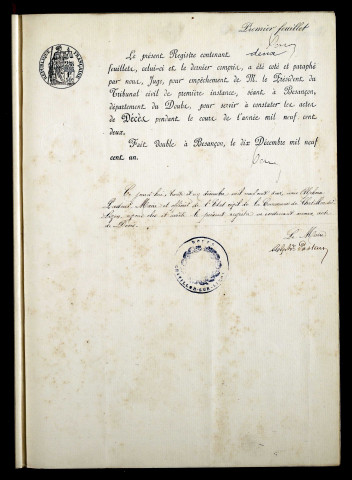 Premier feuillet
Le présent Registre contenant deux
feuillets, celui-ci et le dernier compris, a été coté et paraphé
par nous, Juge, pour empêchement de M. le Président du
Tribunal civil de première instance, séant à Besançon,
département du Doubs, pour servir à constater les actes
de Décès pendant le cours de l'année mil neuf cent
deux.
Fait double à Besançon, le dix Décembre mil neuf
cent un.
Ce jourd'hui trente et un décembre mil neuf cent deux, nous Adolphe
Pasteur Maire et officier de l'Etat civil de la Commune de
avons clos et arrêté le présent registre ne contenant aucun acte
de Décès.
Le Maire
Adolphe Pasteur
MAIRIE